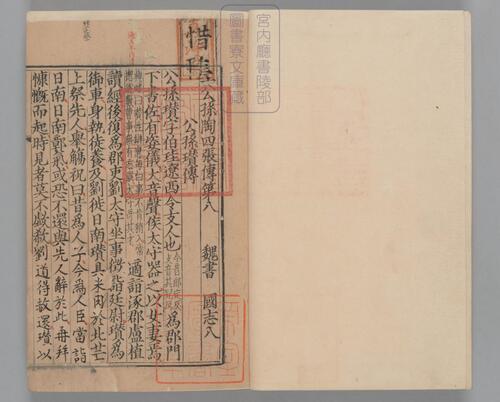 宮內廳書陵部
圖書寮文庫藏
惜陰
公孫陶四張傳第八　魏書　國志八
公孫瓚傳
公孫瓚字伯珪遼西令支人也爲郡門
下書佐有姿儀大音聲侯太守器之以女妻焉
遣詣涿郡盧植
讀經後復爲郡吏劉太守坐事徵詣廷尉瓚爲
御車身執徒養及劉徙日南瓚具米肉於北芒
上祭先人舉觴祝曰昔爲人子今爲人臣當詣
日南日南鄣氣或恐不還與先人辭於此再拜
慷慨而起時見者莫不歔欷劉道得赦還瓚以